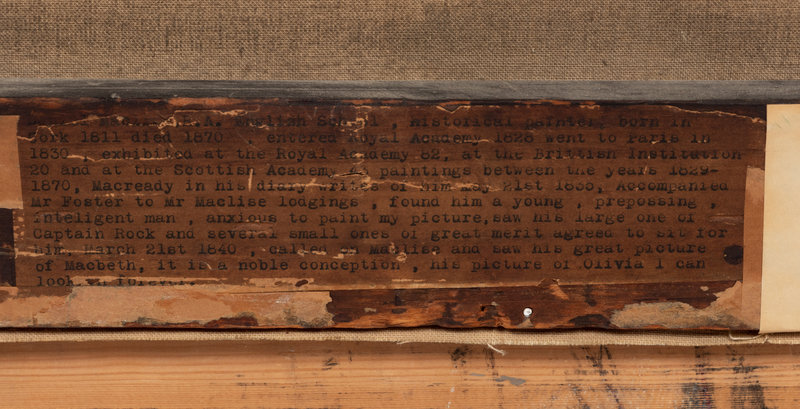 R.A. English School , Historical painter, born in
York 1811 died 1870 , entered Royal Academy 1828 went to Paris in
1830 , exhibited at the Royal Academy 82, at the Brittish Institution
20 and at the Scottish Academy paintings between the years 1829-
1870, Macready in his diary writes of him May 21st 1838, Accompanied
Mr Foster to Mr Maclise lodgings , found him a young , prepossing ,
inteligent man , anxious to paint my picture,saw his large one of
Captain Rock and several small ones of great merit agreed to sit for
him. March 21st 1840 , called on Maclise and saw his great picture
of Macbeth, it is a noble conception , his picture of Olivia I can
look forever.